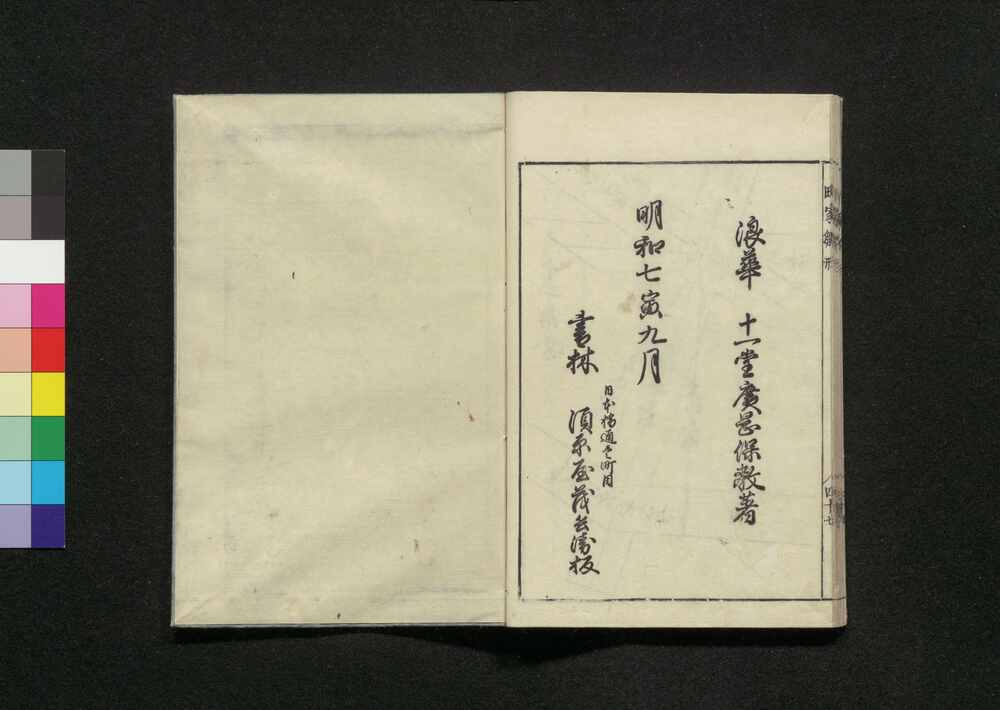 浪華　十一堂廣是保教著
明和七寅九月
日本橋通壱町目
書林　須原屋茂兵衛板
四十七